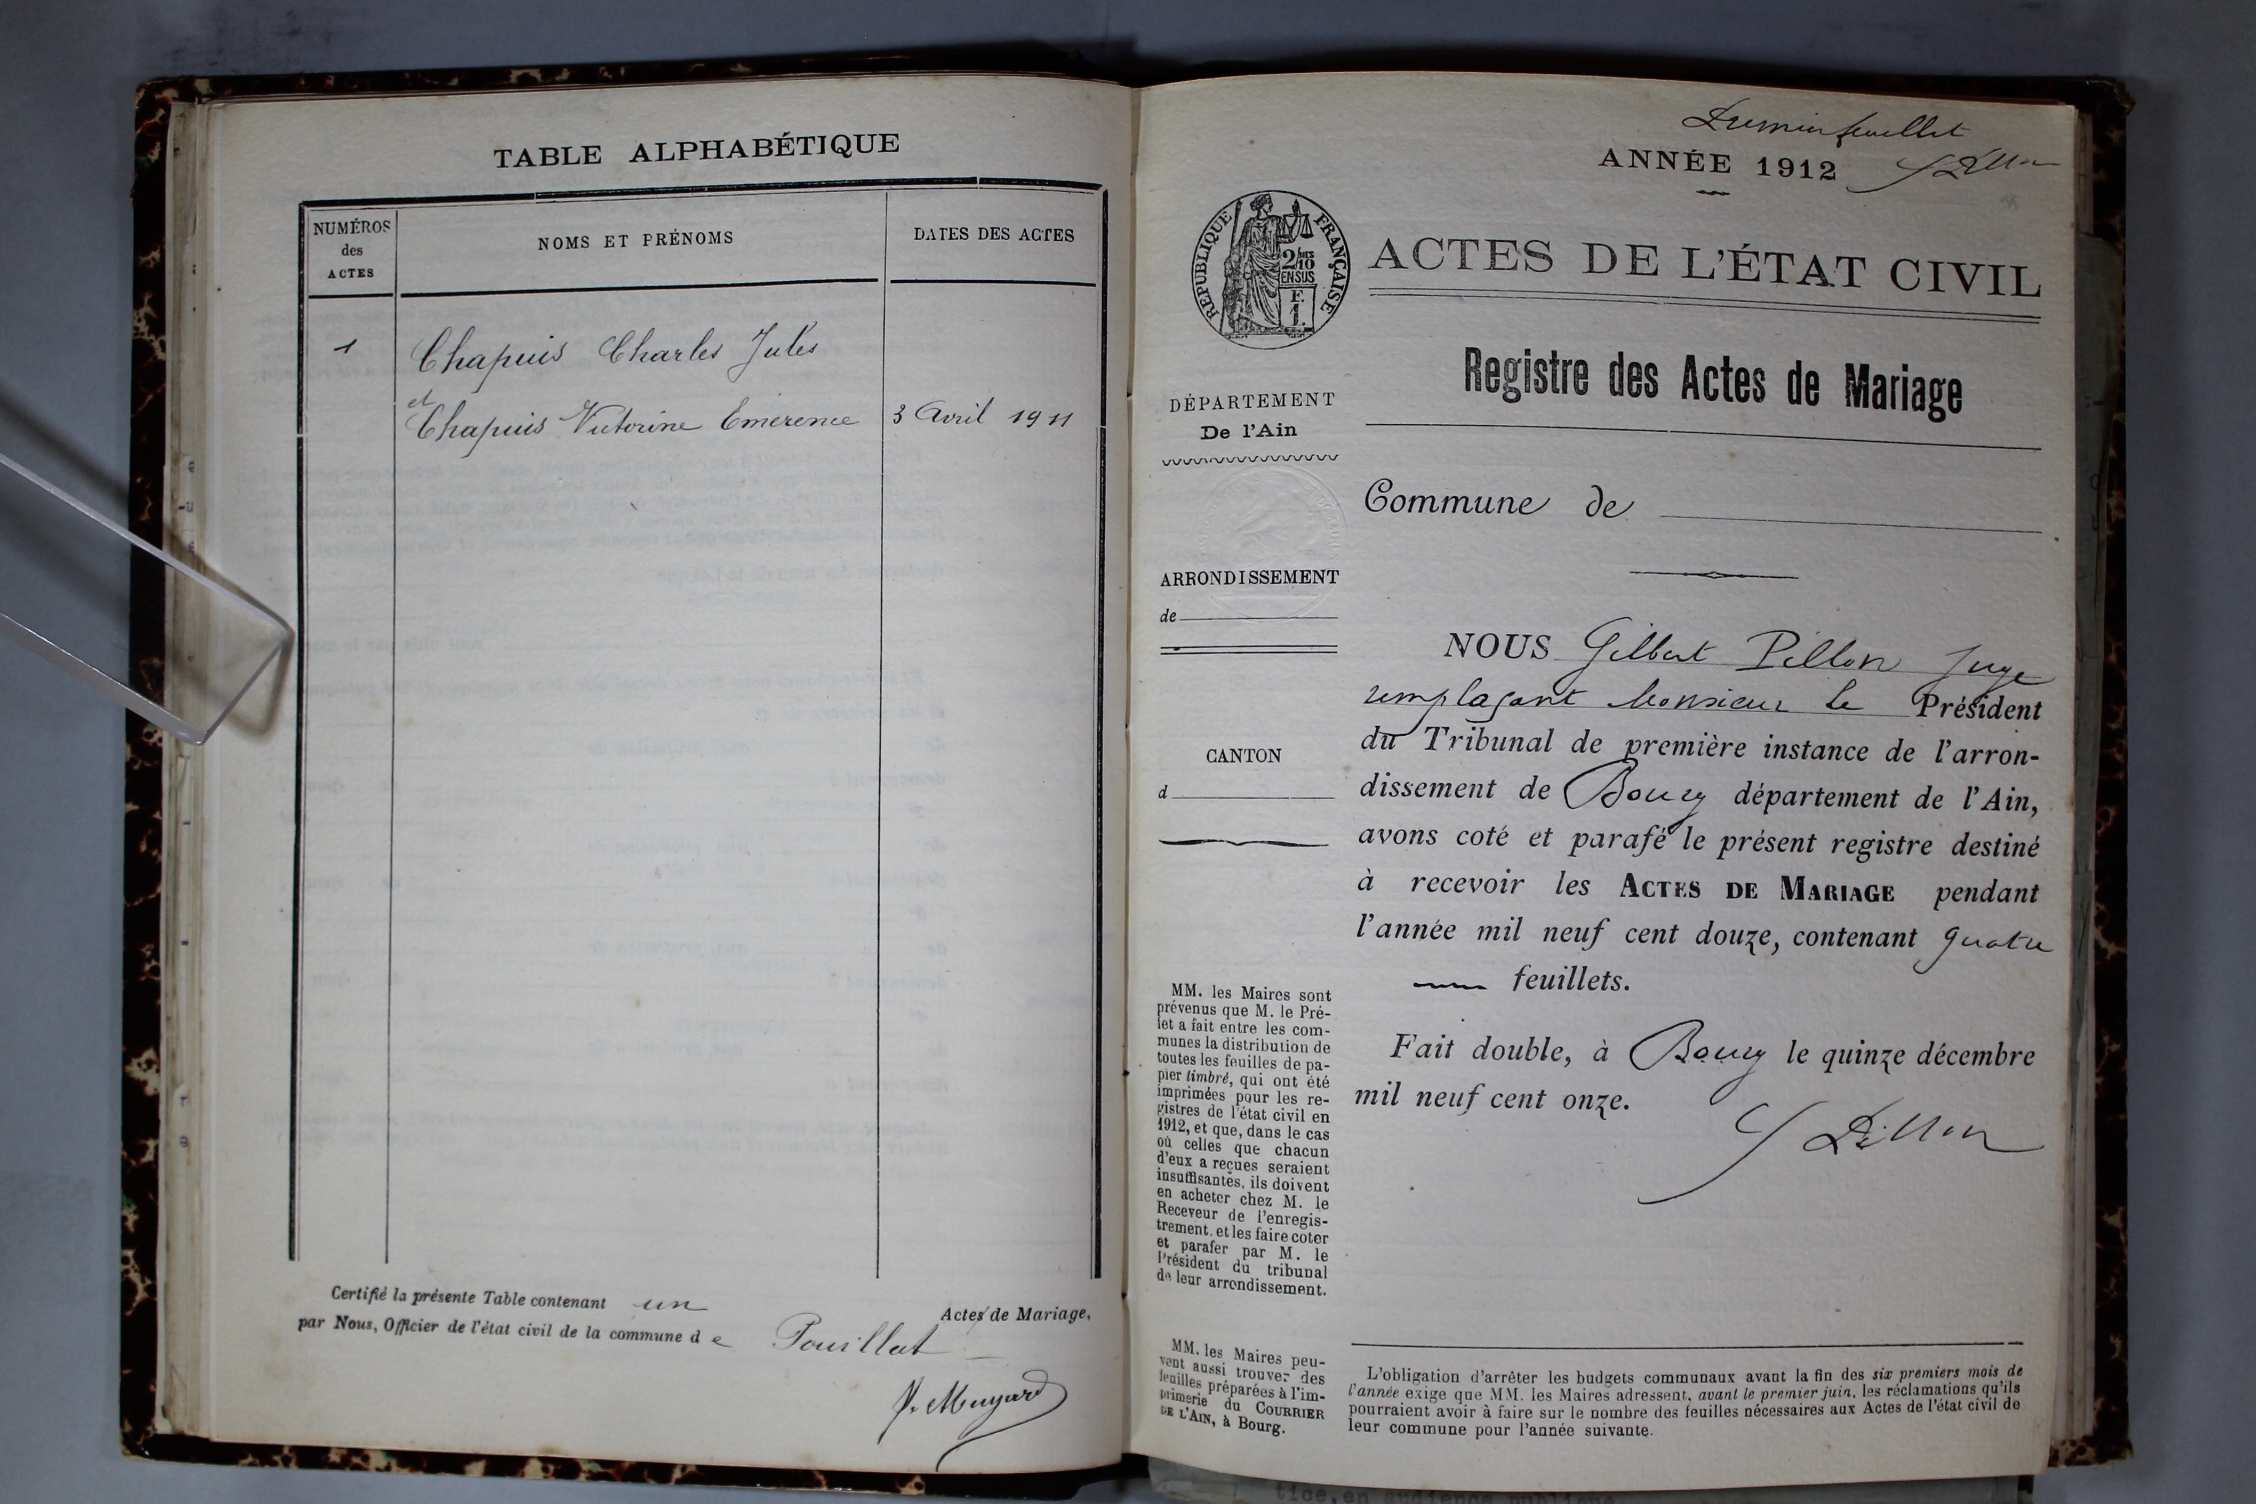 TABLE ALPHABÉTIQUE
NUMÉROS
des
ACTES
NOMS ET PRÉNOMS
DATES DES ACTES
1
Chapuis Charles Jules
et
Chapuis Victorine Emérence
3 Avril 1911
Certifié la présente Table contenant un
Actes de Mariage,
par Nous, Officier de l'état civil de la commune de Pouillat
P. Muyard
Premier feuillet
ANNÉE 1912
GPillon
RÉPUBLIQUE FRANÇAISE
2/10
EN SUS
F.
1.
ACTES DE L'ÉTAT CIVIL
Registre des Actes de Mariage
DÉPARTEMENT
De l'Ain
Commune de
ARRONDISSEMENT
de
NOUS Gilbert Pillon Juge
remplaçant Monsieur le Président
du Tribunal de première instance de l'arron-
CANTON
d
dissement de Bourg département de l'Ain,
avons coté et parafé le présent registre destiné
à recevoir les ACTES DE MARIAGE pendant
l'année mil neuf cent douze, contenant quatre
feuillets.
Fait double, à Bourg le quinze décembre
mil neuf cent onze.
GPillon
MM. les Maires sont
prévenus que M. le Pré-
fet a fait entre les com-
munes la distribution de
toutes les feuilles de pa-
pier timbré, qui ont été
imprimées pour les re-
gistres de l'état civil en
1912, et que, dans le cas
où celles que chacun
d'eux a reçues seraient
insuffisantes, ils doivent
en acheter chez M. le
Receveur de l'enregis-
trement, et les faire coter
et parafer par M. le
Président du tribunal
de leur arrondissement.
MM. les Maires peu-
vent aussi trouver des
feuilles préparées à l'im-
primerie du COURRIER
DE L'AIN, à Bourg.
L'obligation d'arrêter les budgets communaux avant la fin des six premiers mois de
l'année exige que MM. les Maires adressent, avant le premier juin, les réclamations qu'ils
pourraient avoir à faire sur le nombre des feuilles nécessaires aux Actes de l'état civil de
leur commune pour l'année suivante.
tice, en audience publique